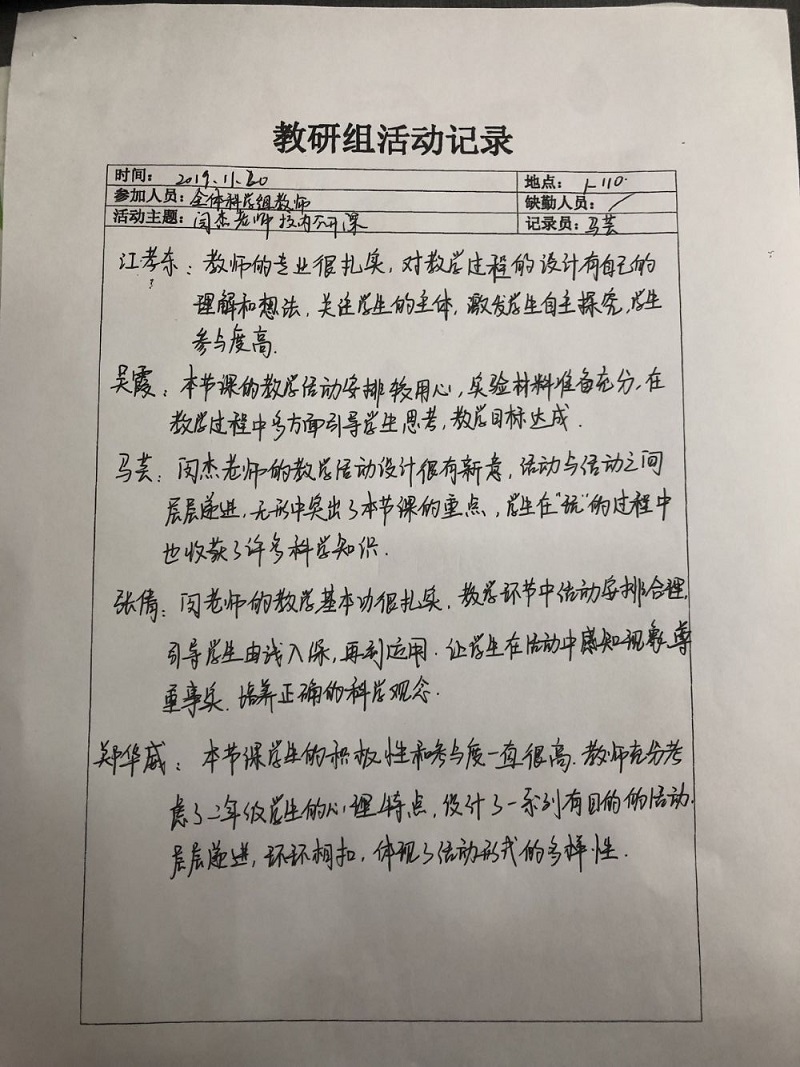 教研组活动记录
时间： 2019.11.20 地点： 1-110.
参加人员：全体科学组教师 缺勤人员： /
活动主题： 闵杰老师校内公开课 记录员：马芸
江孝东：教师的专业很扎实，对教学过程的设计有自己的
理解和想法，关注学生的主体，激发学生自主探究，学生
参与度高.
吴霞：本节课的教学活动安排较用心，实验材料准备充分，在
教学过程中多方面引导学生思考，教学目标达成.
马芸：闵杰老师的教学活动设计很有新意，活动与活动之间
层层递进，无形中突出了本节课的重点，学生在“玩”的过程中
也收获了许多科学知识.
张倩：闵老师的教学基本功很扎实，教学环节中活动安排合理，
引导学生由浅入深，再到运用.让学生在活动中感知现象，尊
重事实.培养正确的科学观念.
郑华威：本节课学生的积极性和参与度一直很高.教师充分考
虑了二年级学生的心理特点，设计了一系列有目的的活动.
层层递进，环环相扣，体现了活动形式的多样性.